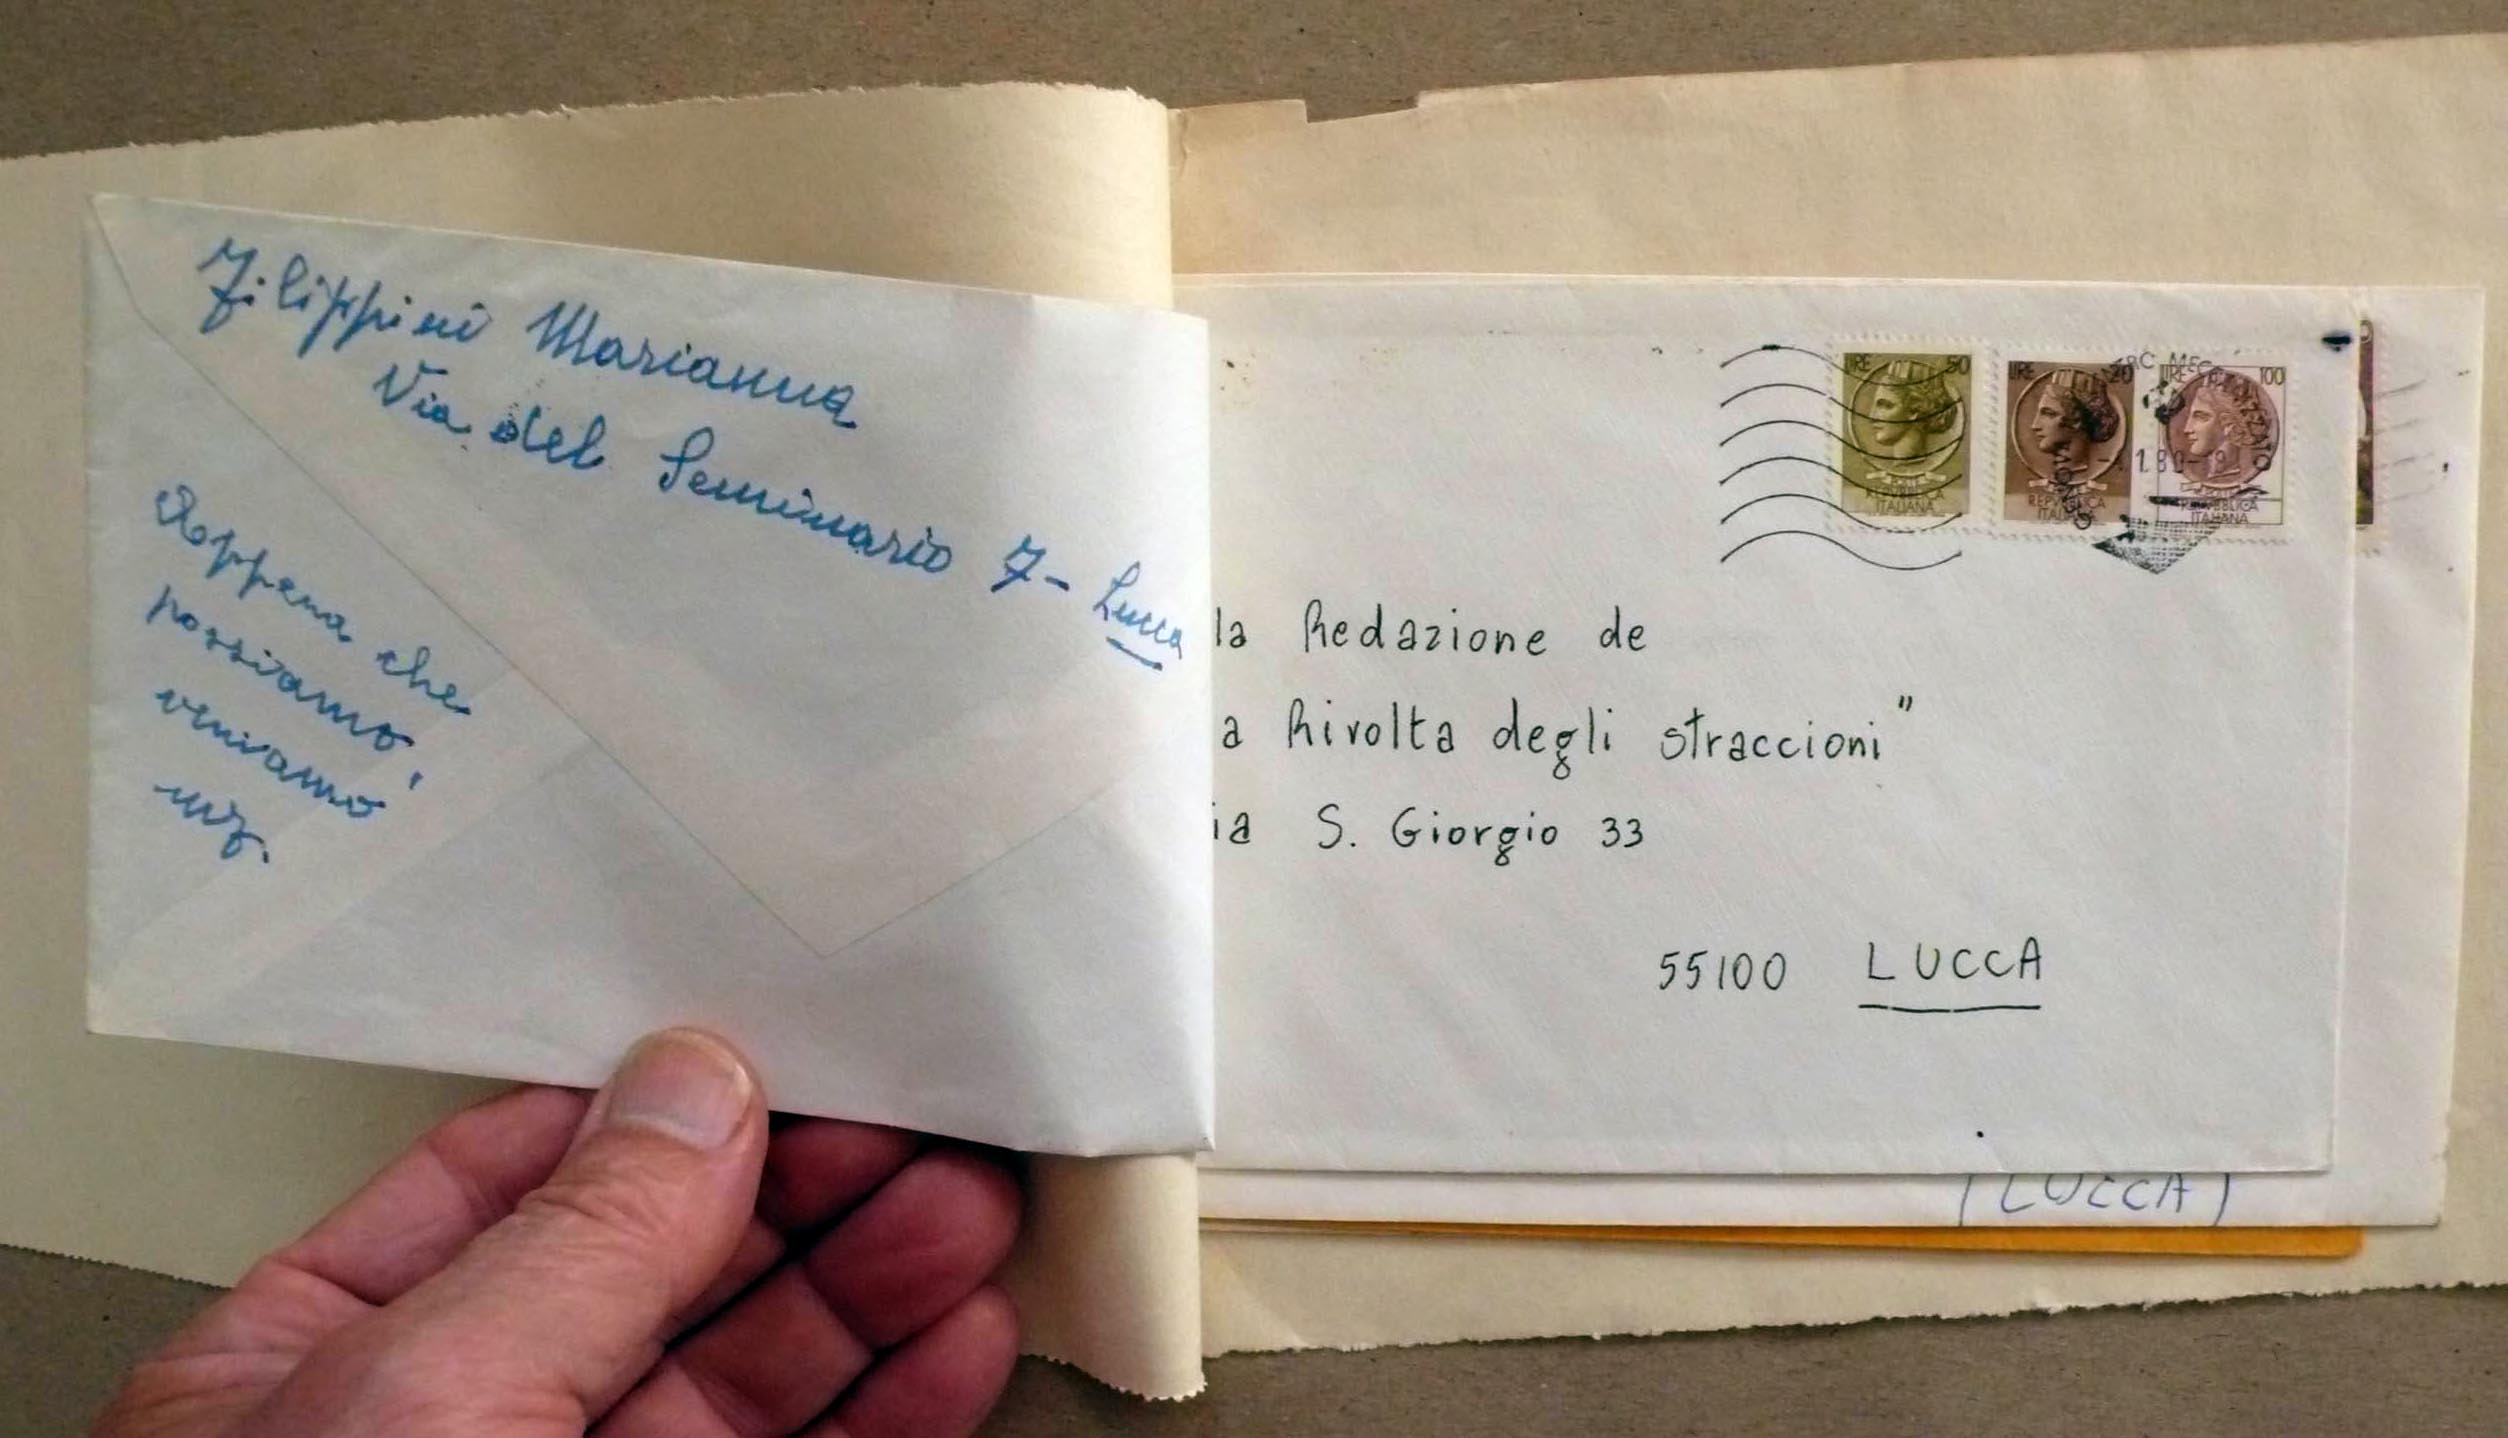 Filippini Marianna
Via del Seminario 7- Lucca
Appena che
possiamo,
veniamo
LIRE 50
POSTE
REPVBBLICA
ITALIANA
LIRE 20
REPVBBLICA
ITALIANA
LIRE 100
REPVBBLICA
ITALIANA
la Redazione de
a Rivolta degli straccioni"
ia S. Giorgio 33
55100 LUCCA
(LUCCA)